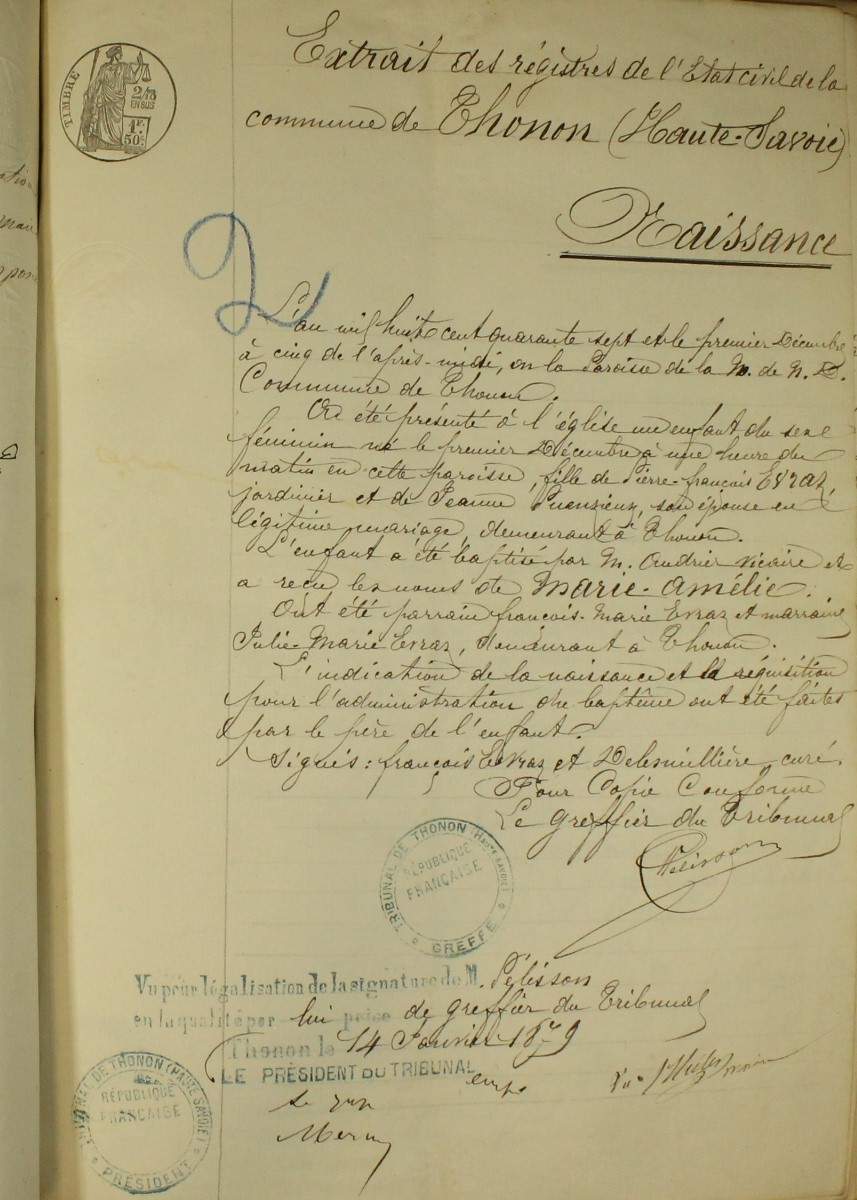 TIMBRE
2/10
EN SUS
1F.
50C.
Extrait des régistres de l'Etat civil de la
commune de Thonon (Haute-Savoie)
Naissance
L'an mil huit cent quarante sept et le premier Décembre
à cinq de l'après-midi, en la Paroisse de la M. de N. D.
Commune de Thonon.
A été présenté à l'église un enfant du sexe
féminin né le premier Décembre à une heure du
matin en cette paroisse, fille de Pierre-françois Evraz,
jardinier et de Jeanne son épouse en
légitime mariage, demeurant à Thonon.
L'enfant a été baptisé par M. Audrier vicaire et
a reçu les noms de Marie-Amélie.
Ont été parrain françois-Marie Evraz et marraine
Julie-Marie Evraz, demeurant à Thonon.
L'indication de la naissance et la réquisition
pour l'administration du baptême ont été faites
par le père de l'enfant.
Signés : françois Evraz et Delesmillière curé.
Pour Copie Conforme
Le greffier du Tribunal
Pélisson
TRIBUNAL DE THONON (HAUTE SAVOIE)
RÉPUBLIQUE
FRANÇAISE
GREFFE
Vu pour légalisation de la signature de M. Pélisson
en la qualité par lui prise de greffier du Tribunal
Thonon le 14 Janvier 1879
LE PRÉSIDENT DU TRIBUNAL
TRIBUNAL DE THONON (HAUTE SAVOIE)
RÉPUBLIQUE
FRANÇAISE
PRÉSIDENT